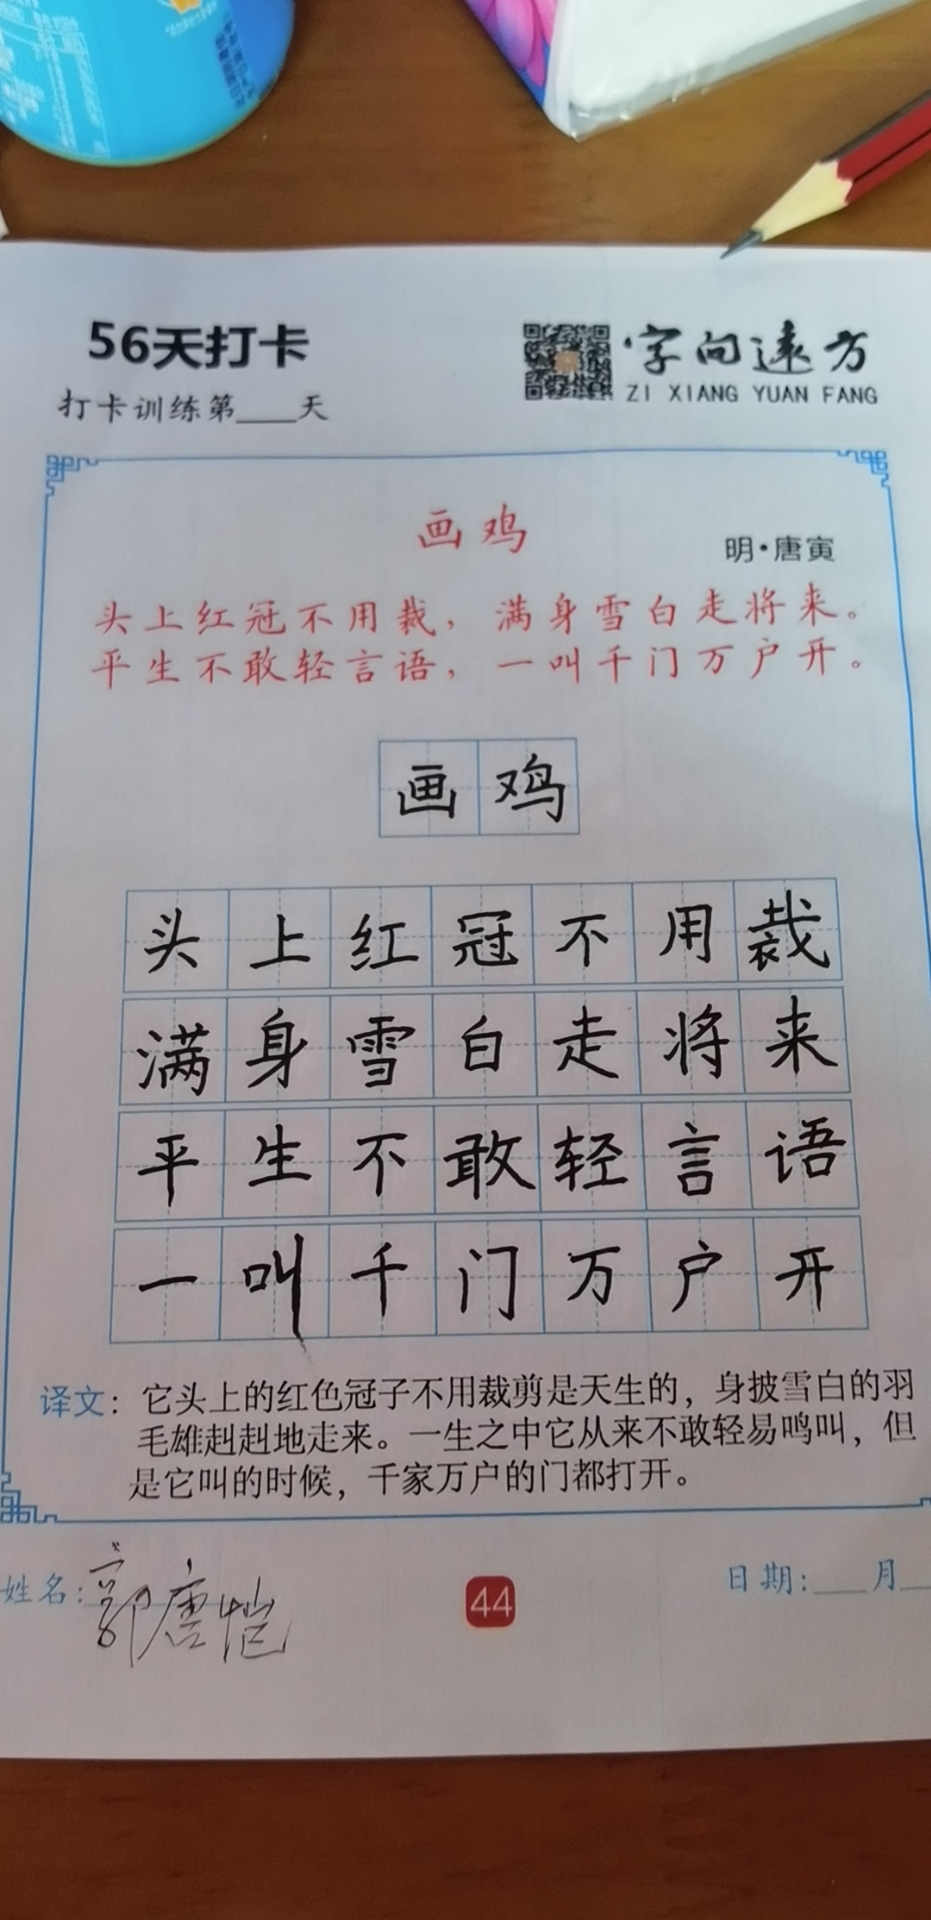 56天打卡
字向远方
ZI XIANG YUAN FANG
打卡训练第___天
画鸡
明·唐寅
头上红冠不用裁，满身雪白走将来。
平生不敢轻言语，一叫千门万户开。
画鸡
头上红冠不用裁
满身雪白走将来
平生不敢轻言语
一叫千门万户开
译文：它头上的红色冠子不用裁剪是天生的，身披雪白的羽
毛雄赳赳地走来。一生之中它从来不敢轻易鸣叫，但
是它叫的时候，千家万户的门都打开。
姓名：郭唐恺
44
日期：___月